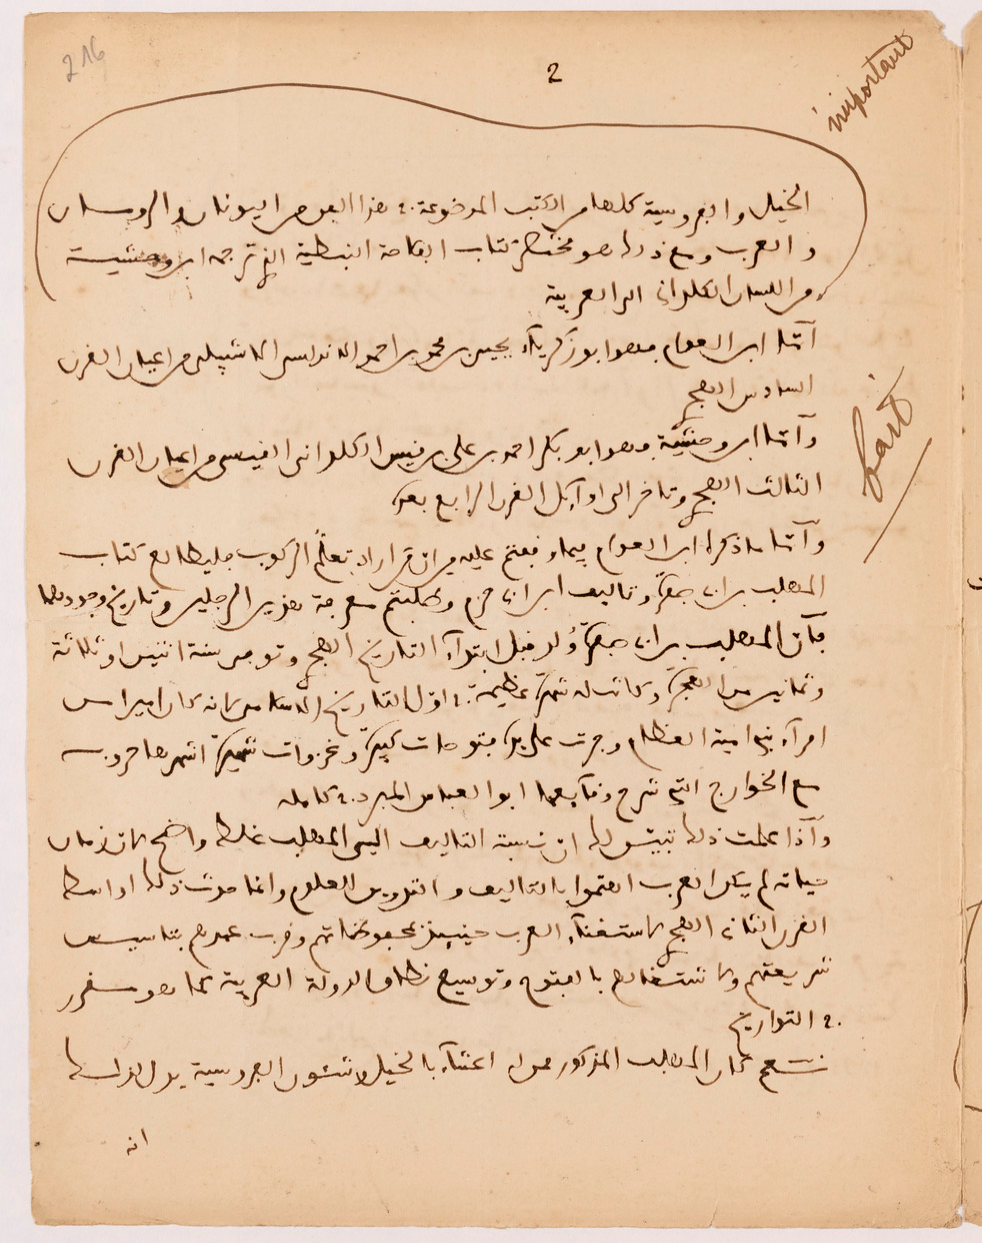 216
2
important
الخيل والفروسية كلها من الكتب الموضوعة في هذا الفن من اليونان والروسان
والعرب ومع ذلك هو مختصر كتاب الفلاحة النبطية الذي ترجمه ابن وحشية
من اللسان الكلداني الى العربية
أمّا ابن العوام فهو ابو زكرياء يحيى بن محمد بن احمد الاندلسي الاشبيلي من اعيان القرن
السادس الهجري
وأمّا ابن وحشيّة فهو ابو بكر احمد بن علي بن قيس الكلداني القيسي من اعيان القرن
الثالث الهجري وتاخر الى اوآيل القرن الرابع بعده
وأمّا ما ذكره ابن العوام فيما من ان من اراد تعلّم الركوب فليطالع كتاب
المهلب بن ابي صفرة وتاليف ابن ابي حزم وطلبتم معرفة هذين الرجلين وتاريخ وجودهما
فآن المهلب بن ابي صفرة وُلد قبل ابتدآء التاريخ الهجري وتوفي سنة اثنين او ثلاثة
وثمانين من الهجرة وكانت له شهرة عظيمة في اول التاريخ الاسلامي لانه كان اميرا من
امرآء بني امية العظام وجرت على يده فتوحات كبيرة وغزوات شهيرة اشهرها حروبه
مع الخوارج التي شرح وقآيعها ابو العباس المبرد في كامله
وآذا علمت ذلك تبيّن لك ان نسبة التاليف الى المهلب غلط واضح لان زمان
حياته لم يكن العرب اهتموا بالتاليف والتدوين العلوم وانما حدث ذلك اواسط
القرن الثاني الهجري لاستغنآء العرب حينيذ بمحفوظاتهم وقرب عهدهم بتاسيس
شريعتهم ولاشتغالهم بالفتوح وتوسيع نطاق الدولة العربية كما هو مقرر
في التواريخ
نعم كان المهلب المذكور ممن له اعتنآء بالخيل وشئون الفروسية يدل لذلك
انه